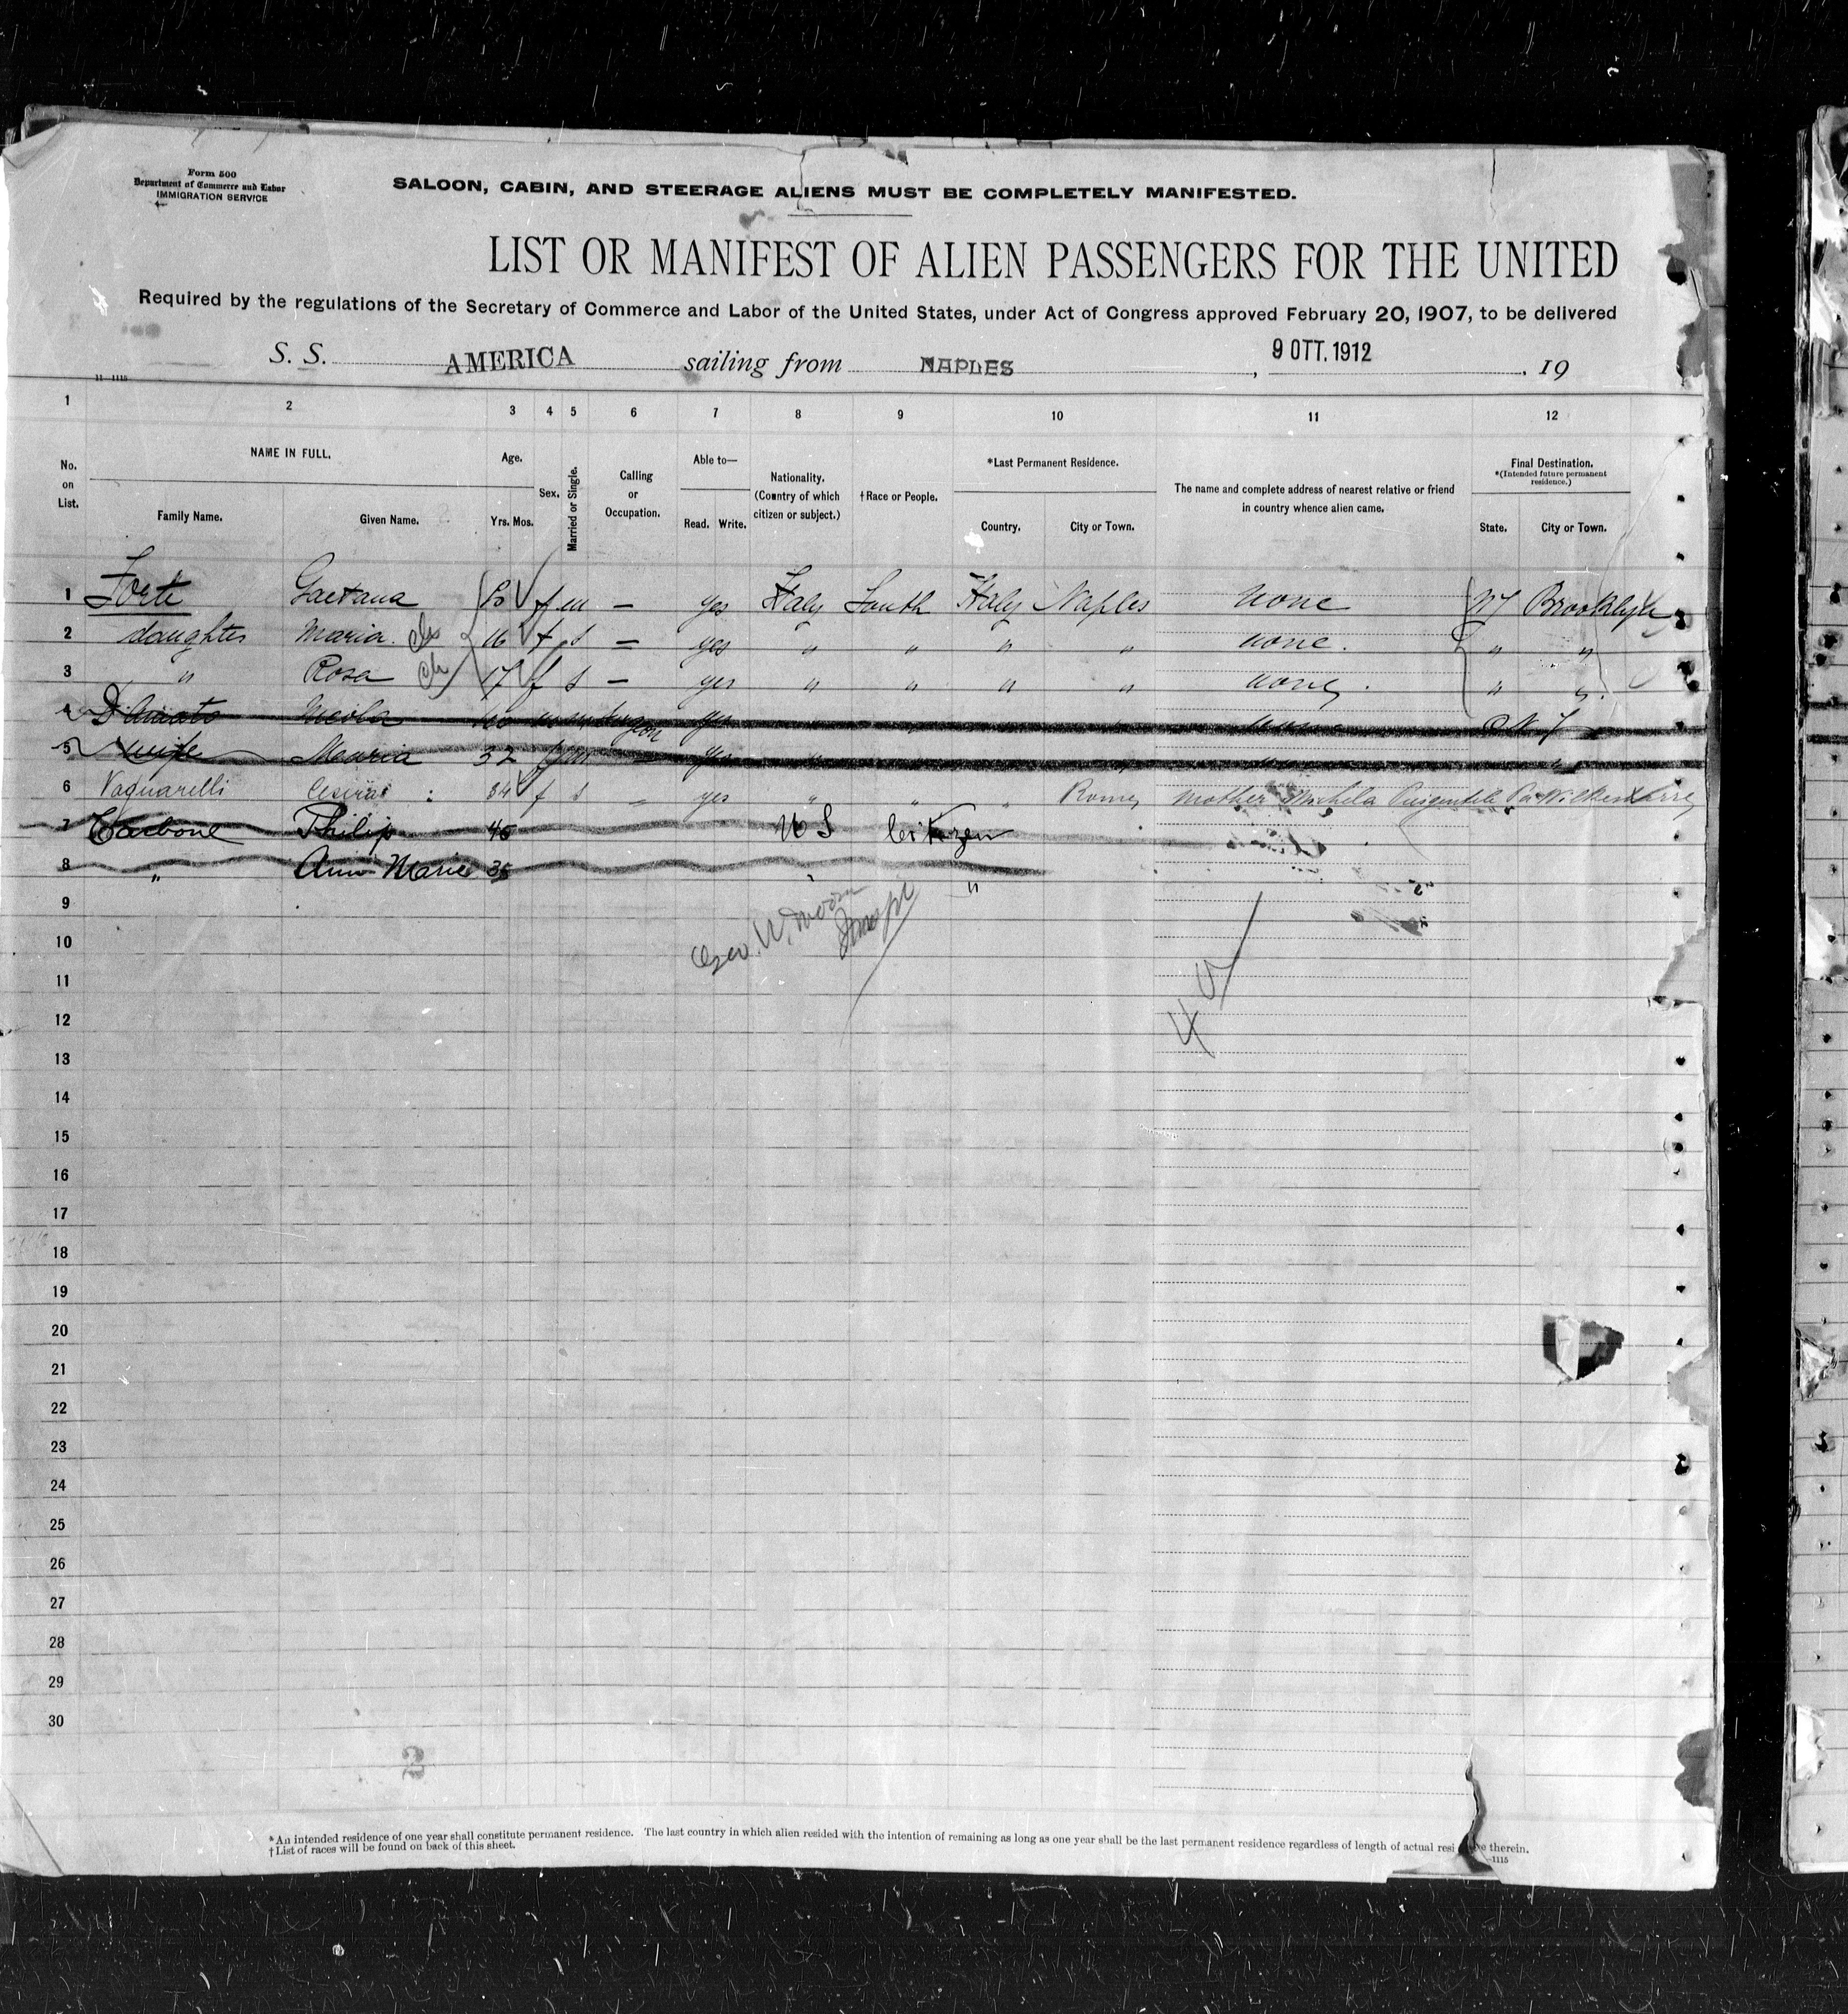 Form 500
Department of Commerce and Labor
IMMIGRATION SERVICE
SALOON, CABIN, AND STEERAGE ALIENS MUST BE COMPLETELY MANIFESTED.
LIST OR MANIFEST OF ALIEN PASSENGERS FOR THE UNITED
Required by the regulations of the Secretary of Commerce and Labor of the United States, under Act of Congress approved February 20, 1907, to be delivered
S. S. AMERICA sailing from NAPLES, 9 OTT. 1912. 19
11-1115
1 2 3 4 5 6 7 8 9 10 11 12
No. on List.
NAME IN FULL.
Family Name. Given Name.
Age.
Yrs. Mos.
Sex.
Married or Single.
Calling or Occupation.
Able to—
Read. Write.
Nationality. (Country of which citizen or subject.)
†Race or People.
*Last Permanent Residence.
Country. City or Town.
The name and complete address of nearest relative or friend in country whence alien came.
Final Destination.
*(Intended future permanent residence.)
State. City or Town.
1 Forte Gaetana f m — yes Italy South Italy Naples none NY Brooklyn
2 daughter Maria 16 f s — yes " " " " none. " "
3 " Rosa 17 f s — yes " " " " none. " "
4 D'Amato Nicola 40 m m surgeon yes none N Y
5 wife Maria 32 f m — yes
6 Vaquarelli 34 f s — yes " " " Rome mother Michela Pa Wilkesbarre
7 Carbone Philip 45 U S Citizen
8 " Ann Marie 35 " "
9
Geo. W. Moore
Inspr
10
11
4
12
13
14
15
16
17
18
19
20
21
22
23
24
25
26
27
28
29
30
2
*An intended residence of one year shall constitute permanent residence. The last country in which alien resided with the intention of remaining as long as one year shall be the last permanent residence regardless of length of actual resi e therein.
†List of races will be found on back of this sheet.
-1115